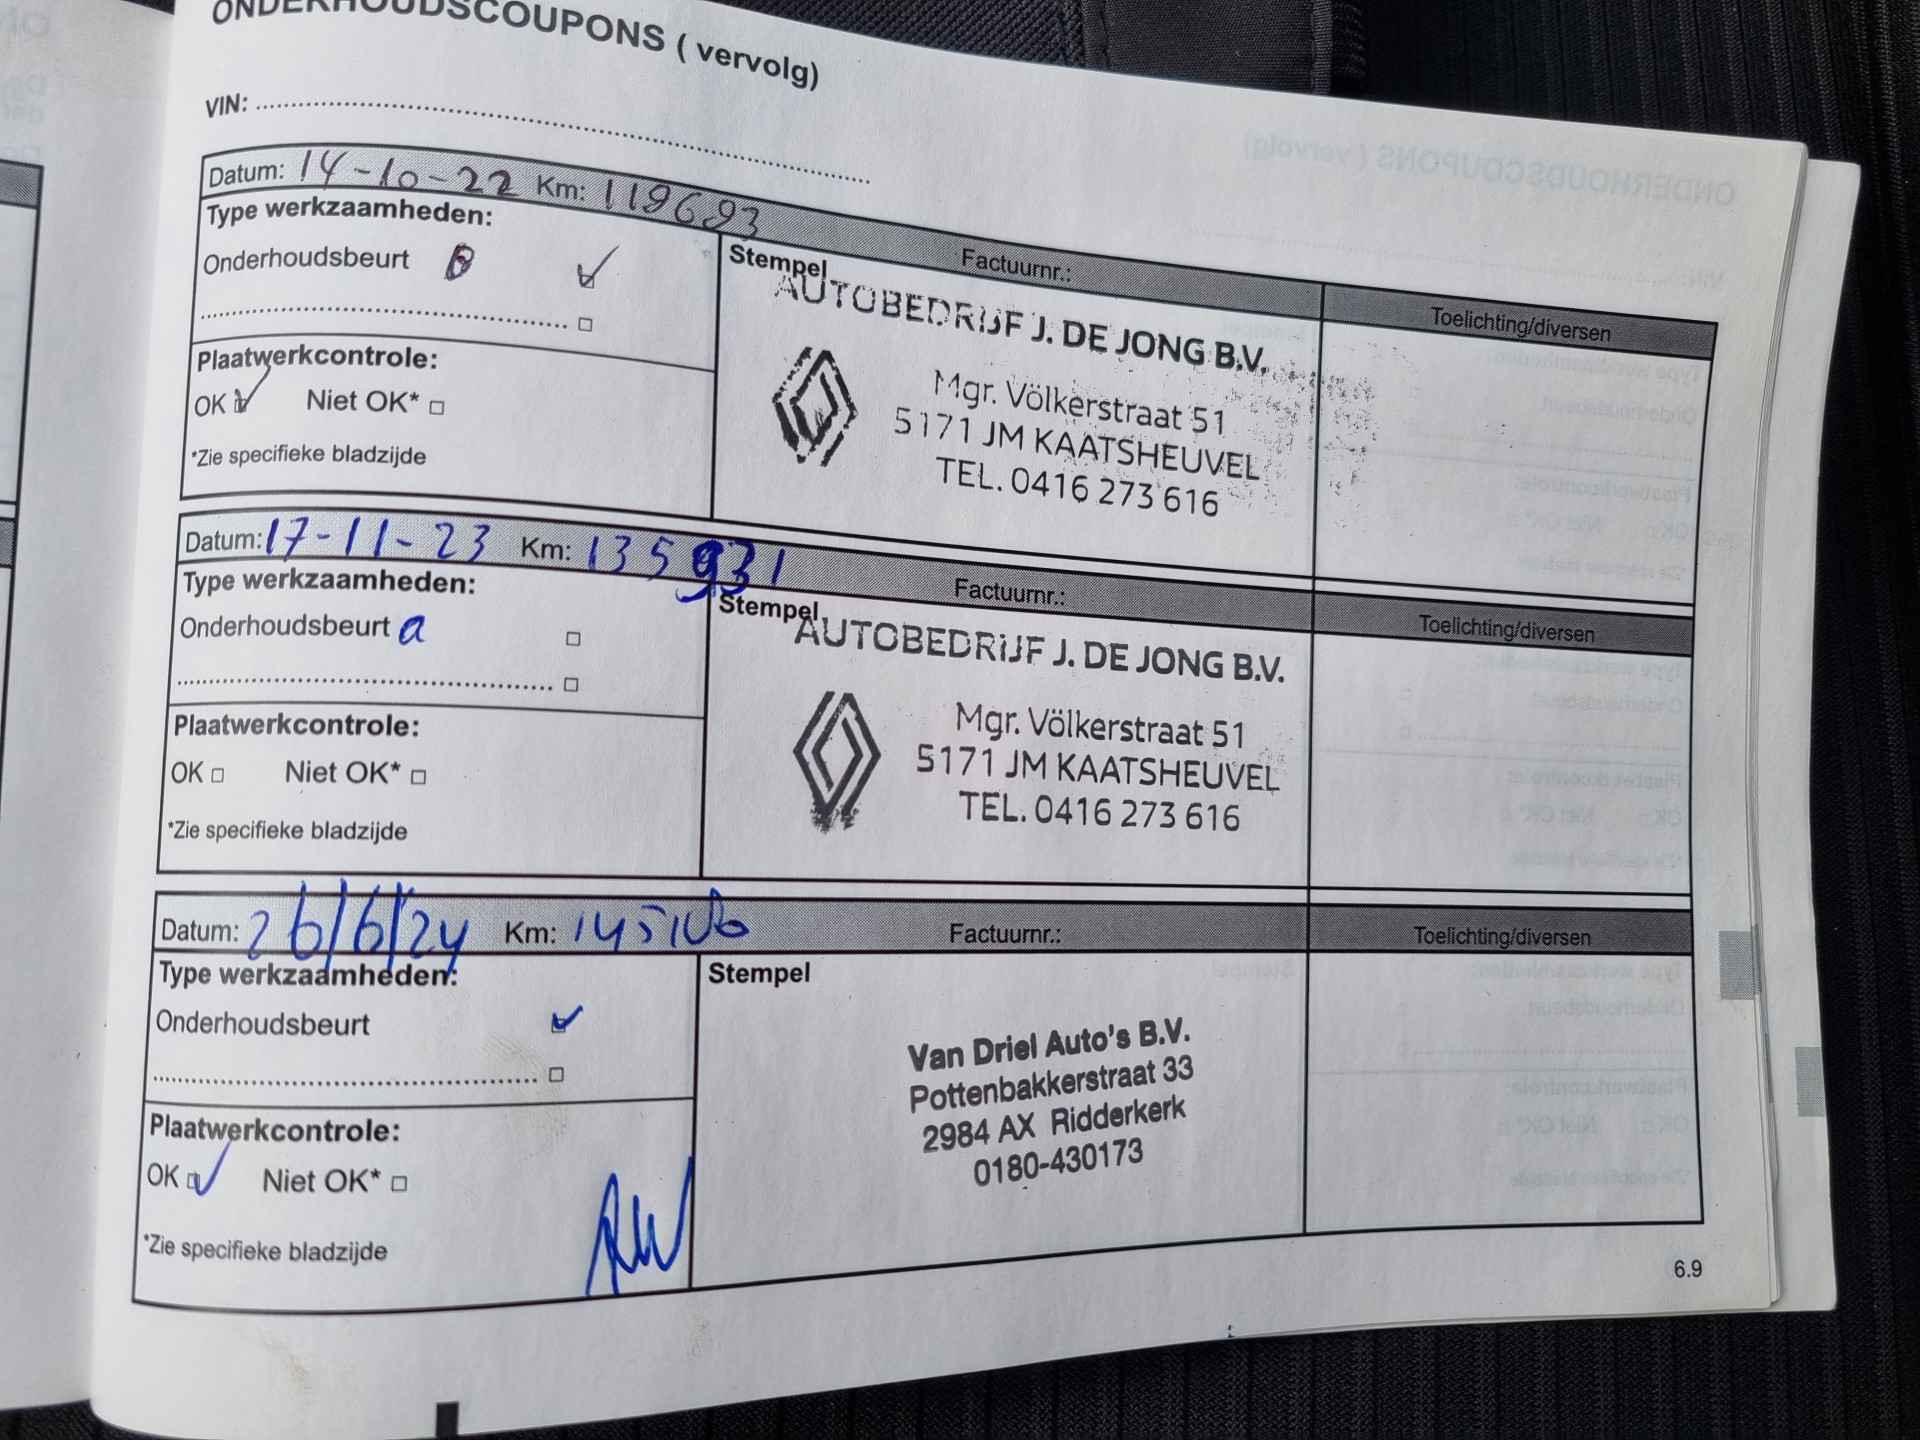 ONDERHOUDSCOUPONS ( vervolg)
VIN:
Datum: 14-10-22 Km: 119693
Factuurnr.:
Toelichting/diversen
Type werkzaamheden:
Onderhoudsbeurt B
Plaatwerkcontrole:
OK Niet OK*
*Zie specifieke bladzijde
Stempel
AUTOBEDRIJF J. DE JONG B.V.
Mgr. Völkerstraat 51
5171 JM KAATSHEUVEL
TEL. 0416 273 616
Datum: 17-11-23 Km: 135931
Factuurnr.:
Toelichting/diversen
Type werkzaamheden:
Onderhoudsbeurt a
Plaatwerkcontrole:
OK Niet OK*
*Zie specifieke bladzijde
Stempel
AUTOBEDRIJF J. DE JONG B.V.
Mgr. Völkerstraat 51
5171 JM KAATSHEUVEL
TEL. 0416 273 616
Datum: 26/6/24 Km: 145106
Factuurnr.:
Toelichting/diversen
Type werkzaamheden:
Onderhoudsbeurt
Plaatwerkcontrole:
OK Niet OK*
*Zie specifieke bladzijde
Stempel
Van Driel Auto's B.V.
Pottenbakkerstraat 33
2984 AX Ridderkerk
0180-430173
6.9